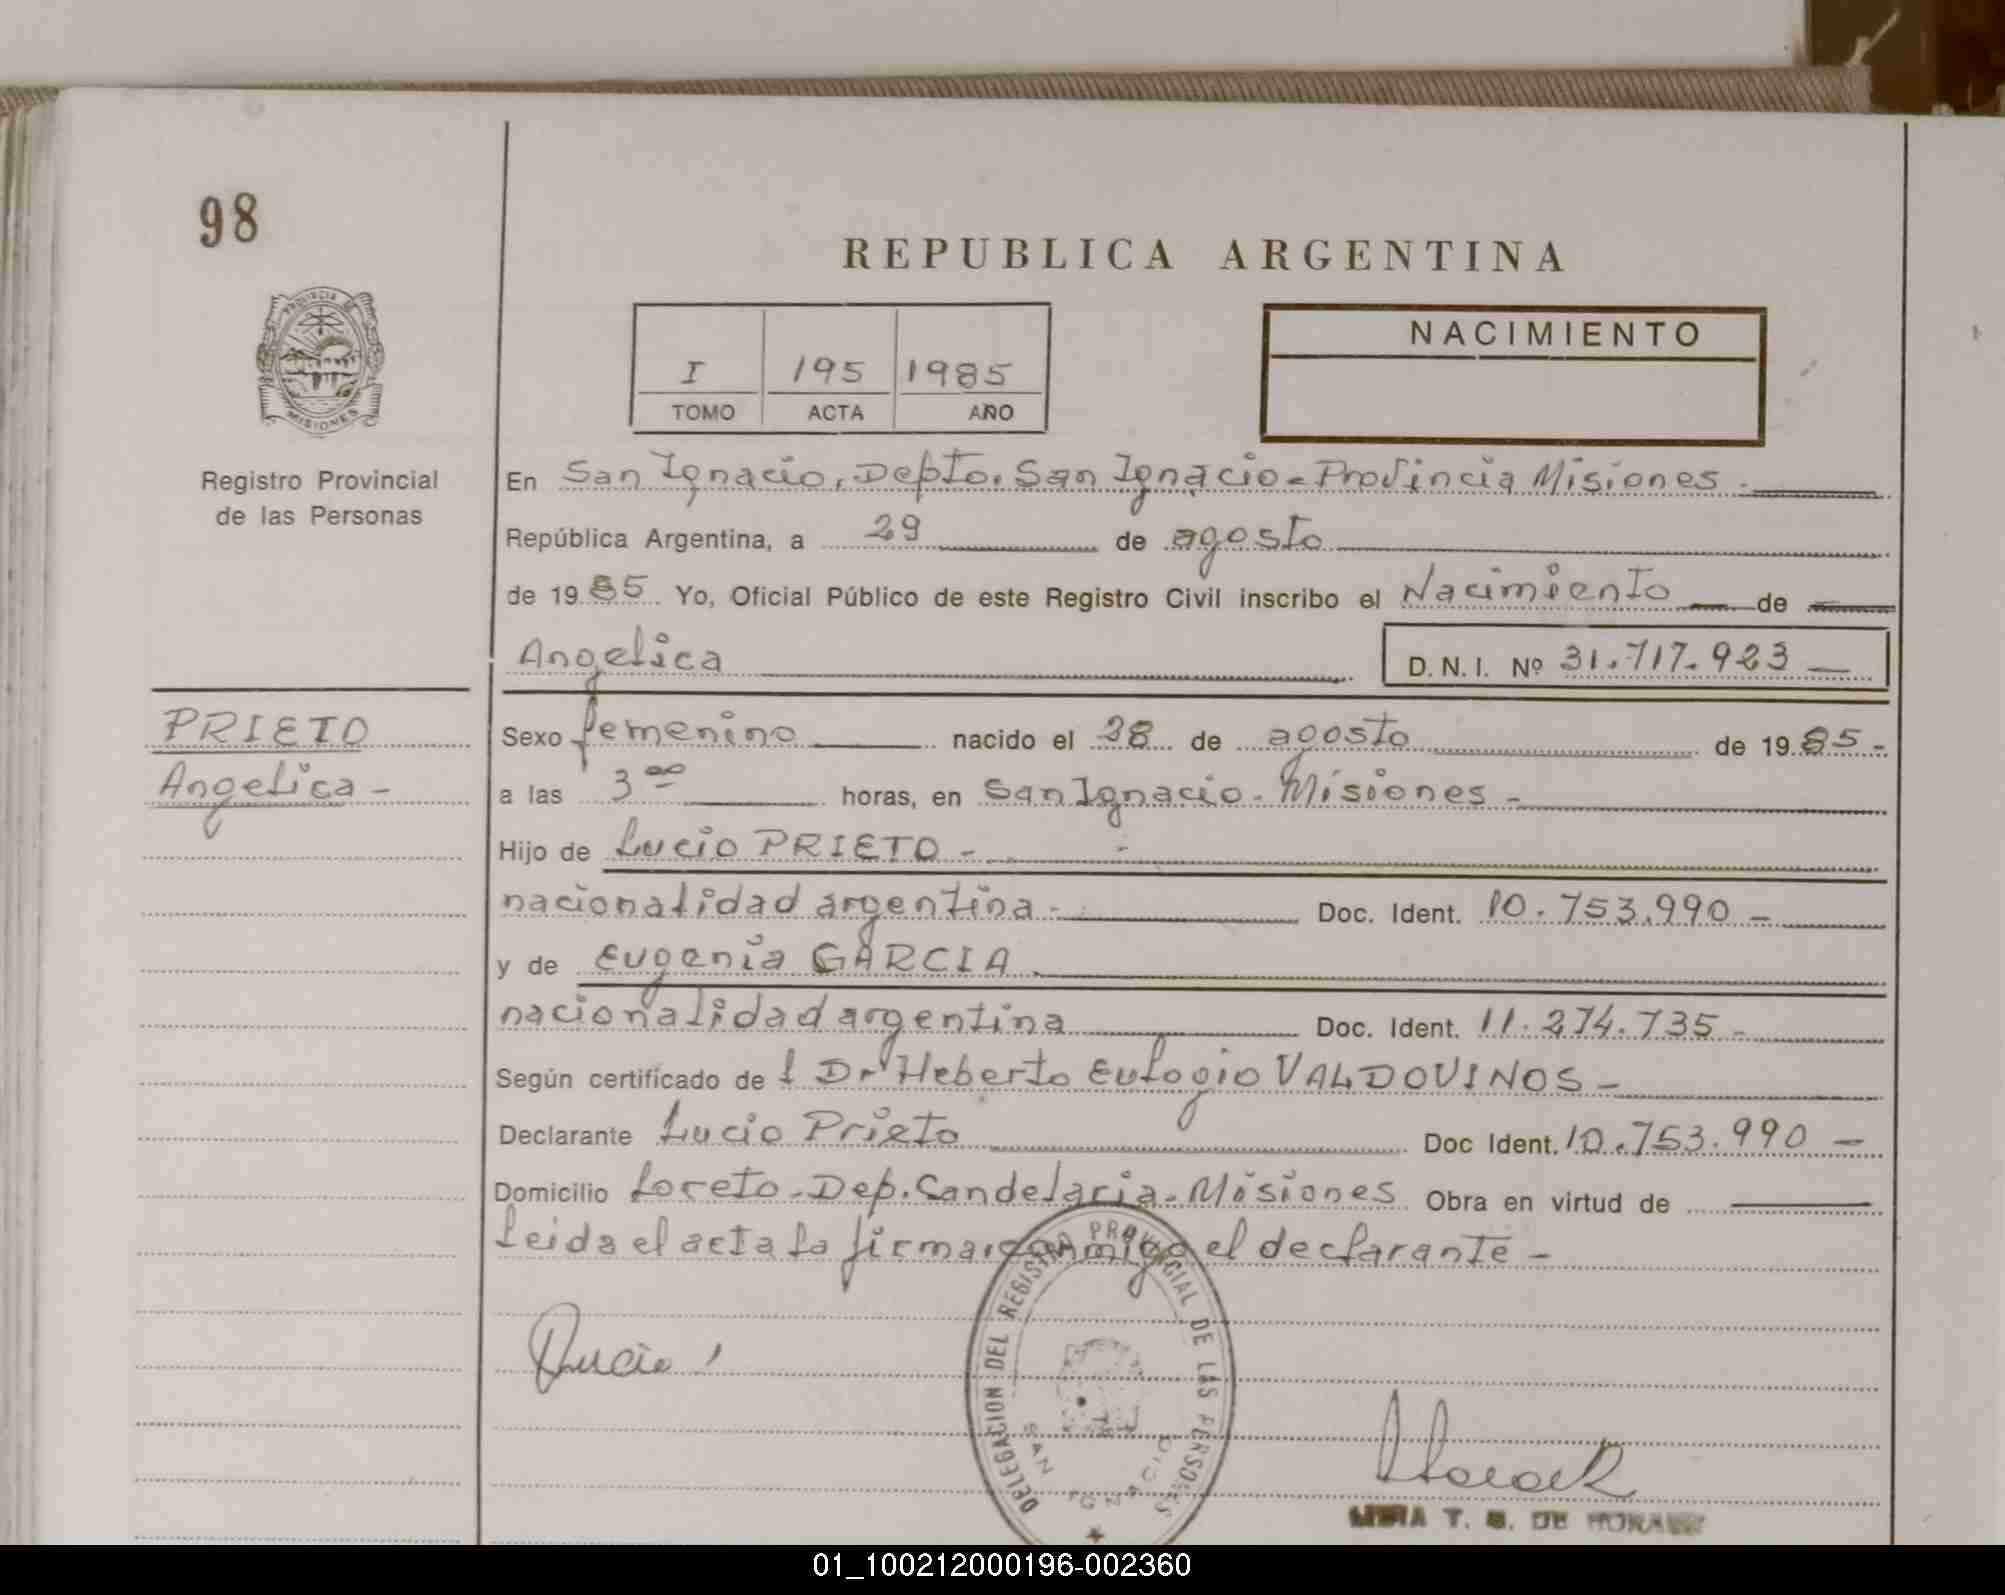 98
REPUBLICA ARGENTINA
PROVINCIA DE
MISIONES
I 195 1985
TOMO ACTA AÑO
NACIMIENTO
Registro Provincial
de las Personas
En San Ignacio, Depto. San Ignacio - Provincia Misiones.
República Argentina, a 29 de agosto
de 1985 Yo, Oficial Público de este Registro Civil inscribo el Nacimiento de
Angelica
D.N.I. Nº 31.717.923
PRIETO
Angelica -
Sexo femenino nacido el 28 de agosto de 1985-
a las 3 00 horas, en San Ignacio - Misiones -
Hijo de Lucio PRIETO -
nacionalidad argentina - Doc. Ident. 10.753.990 -
y de Eugenia GARCIA
nacionalidad argentina Doc. Ident. 11.274.735 -
Según certificado del Dr Heberto Eulogio VALDOVINOS -
Declarante Lucio Prieto Doc Ident. 10.753.990 -
Domicilio Loreto - Dep. Candelaria - Misiones Obra en virtud de
Leida el acta la firma conmigo el declarante -
DELEGACION DEL REGISTRO PROVINCIAL DE LAS PERSONAS
SAN IGNACIO
Lucio
T. DE
01_100212000196-002360